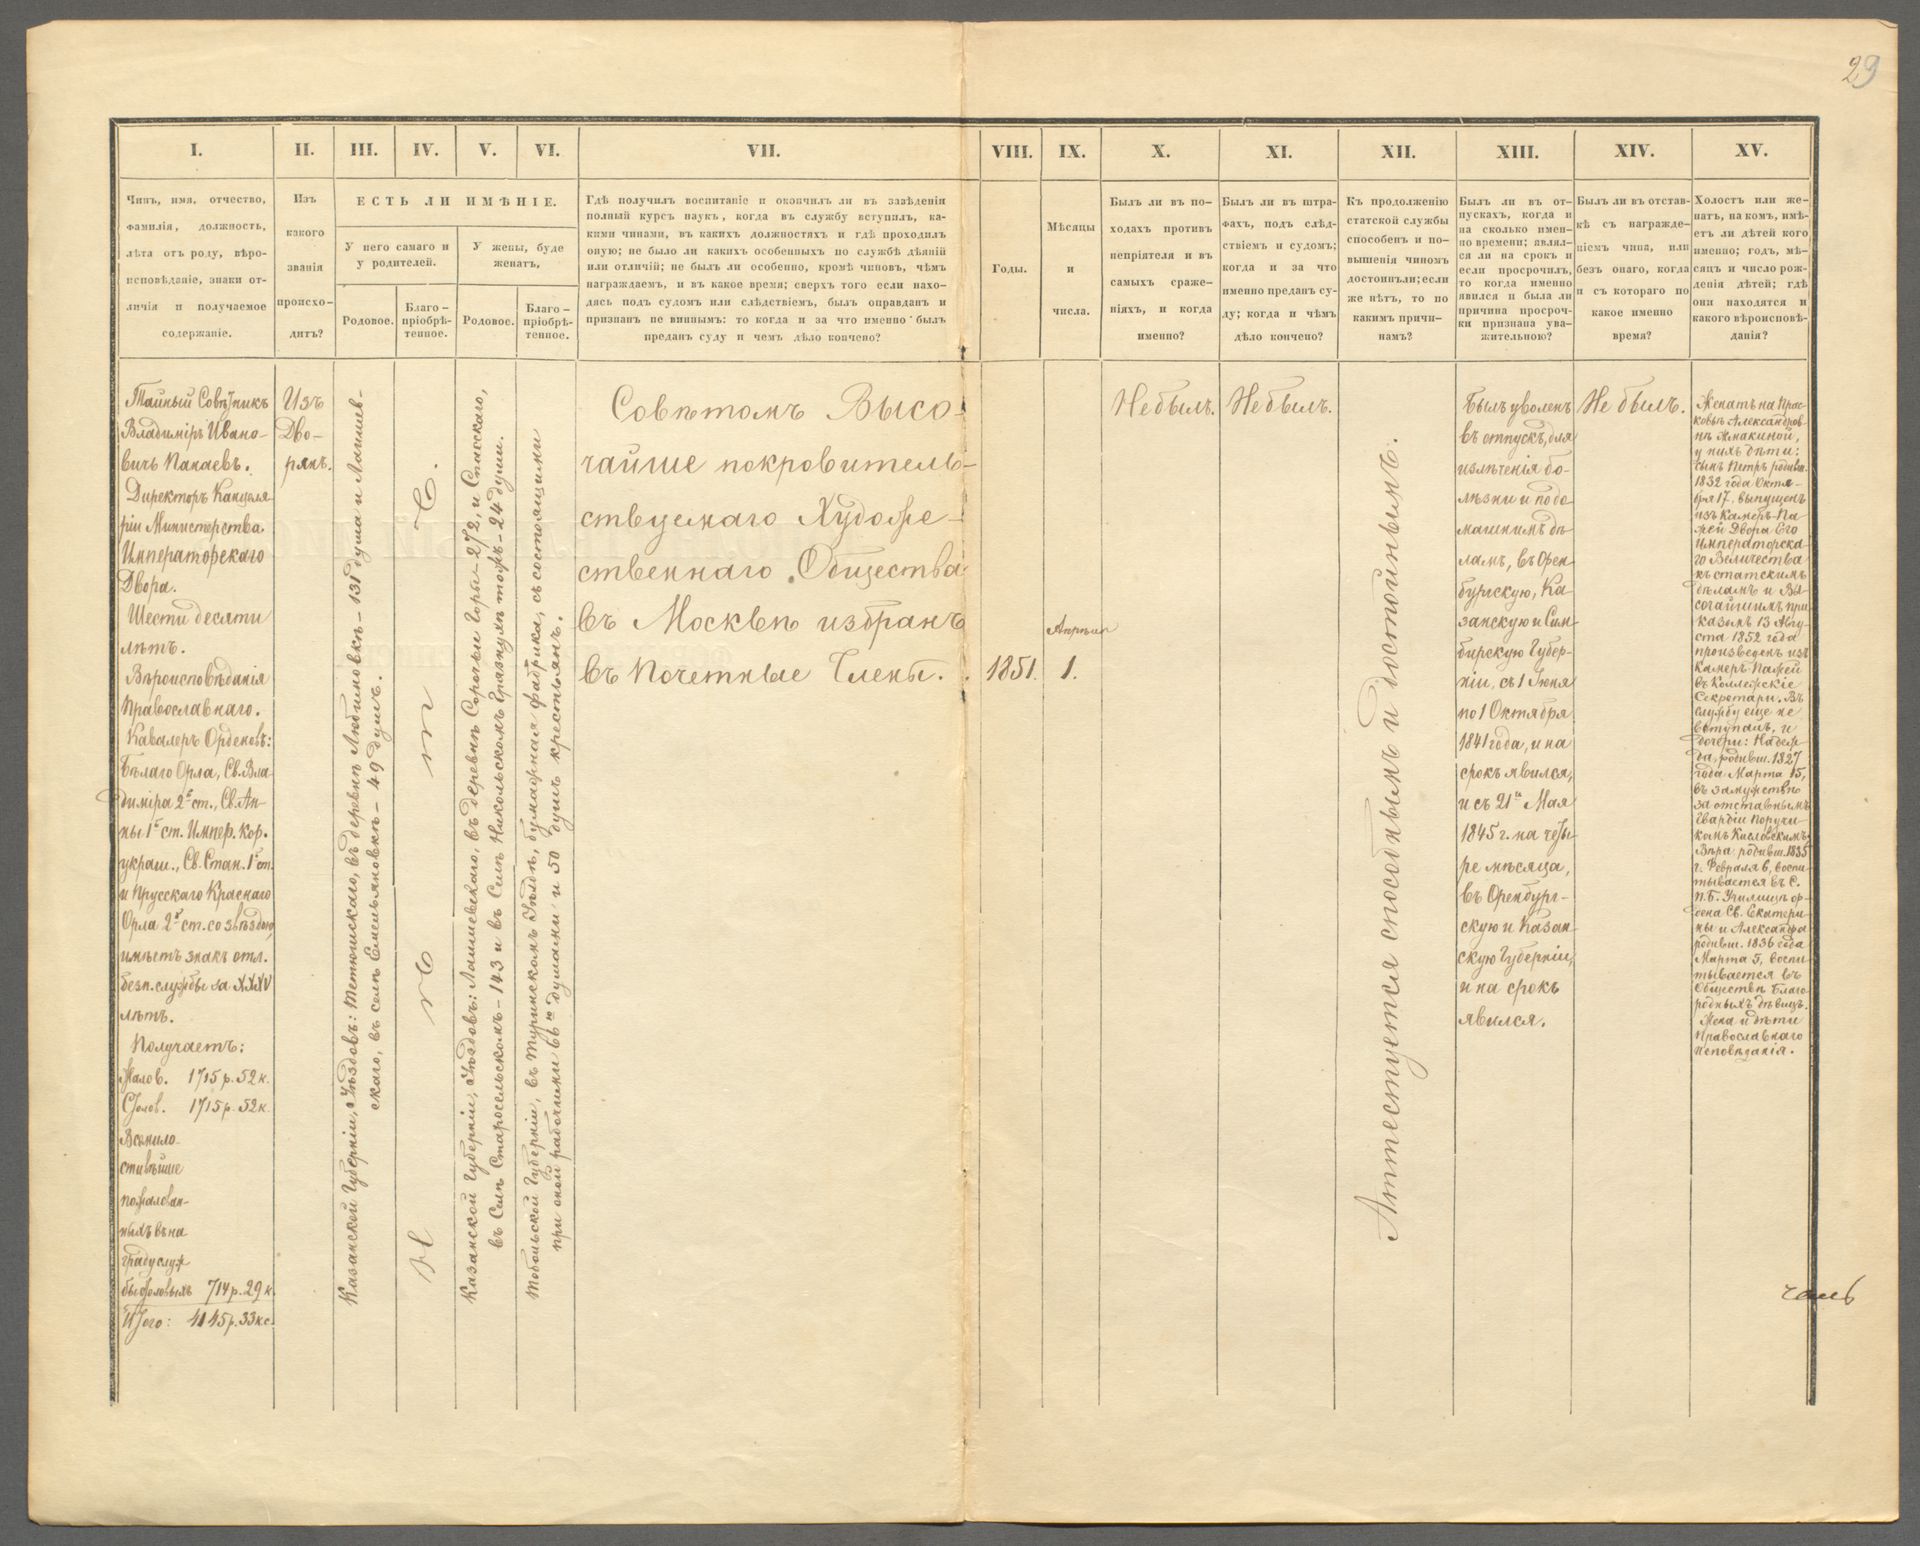 29
I.
II.
III.
IV.
V.
VI.
VII.
VIII.
IX.
X.
XI.
XII.
XIII.
XIV.
XV.
Чинъ, имя, отчество,
фамилія, должность,
лѣта отъ роду, вѣро-
исповѣданіе, знаки от-
личія и получаемое
содержаніе.
Изъ
какого
званія
происхо-
дитъ?
ЕСТЬ ЛИ ИМѢНІЕ.
У него самаго и
у родителей.
У жены, буде
женатъ,
Родовое.
Благо-
пріобрѣ-
тенное.
Родовое.
Благо-
пріобрѣ-
тенное.
Гдѣ получилъ воспитаніе и окончилъ ли въ заведеніи
полный курсъ наукъ, когда въ службу вступилъ, ка-
кими чинами, въ какихъ должностяхъ и гдѣ проходилъ
оную; не было ли какихъ особенныхъ по службѣ дѣяній
или отличій; не былъ ли особенно, кромѣ чиновъ, чѣмъ
награждаемъ, и въ какое время; сверхъ того если нахо-
дясь подъ судомъ или слѣдствіемъ, былъ оправданъ и
признанъ не виннымъ: то когда и за что именно былъ
преданъ суду и чемъ дѣло кончено?
Годы.
Мѣсяцы
и
числа.
Былъ ли въ по-
ходахъ противъ
непріятеля и въ
самыхъ сраже-
ніяхъ, и когда
именно?
Былъ ли въ штра-
фахъ, подъ слѣд-
ствіемъ и судомъ;
когда и за что
именно преданъ су-
ду; когда и чѣмъ
дѣло кончено?
Къ продолженію
статской службы
способенъ и по-
вышенія чиномъ
достоинъ ли; если
же нѣтъ, то по
какимъ причи-
намъ?
Былъ ли въ от-
пускахъ, когда и
на сколько имен-
но времени; являл-
ся ли на срокъ и
если просрочилъ,
то когда именно
явился и была ли
причина просроч-
ки признана ува-
жительною?
Былъ ли въ отстав-
кѣ съ награжде-
ніемъ чина, или
безъ онаго, когда
и съ котораго по
какое именно
время?
Холостъ или же-
натъ, на комъ, имѣ-
етъ ли дѣтей кого
именно; годъ, мѣ-
сяцъ и число рож-
денія дѣтей; гдѣ
они находятся и
какого вѣроисповѣ-
данія?
Тайный Совѣтникъ
Владиміръ Ивано-
вичъ Панаевъ.
Директоръ Канцеля-
ріи Министерства
Императорскаго
Двора.
Шестидесяти
лѣтъ.
Вѣроисповѣданія
Православнаго.
Кавалеръ Орденовъ:
Бѣлаго Орла, Св. Вла-
диміра 2й ст., Св. Ан-
ны 1й ст. Импер. кор.
украш., Св. Стан. 1й ст.
и Прусскаго Краснаго
Орла 2й ст. со звѣздою,
имѣетъ знакъ отл.
безп. службы за XXXV
лѣтъ.
Получаетъ:
Жалов. 1715 р. 52 к.
Столов. 1715 р. 52 к.
Всемило-
стивѣйше
пожалован-
ныхъ въ на
граду служ
бы столовыхъ 714 р. 29 к.
Итого: 4145 р. 33 к. с.
Изъ
Дво-
рянъ.
Казанской Губерніи, Уѣздовъ: Тетюшскаго, въ деревнѣ Любимовкѣ – 131 душа и Лаишев-
скаго, въ селѣ Емельяновкѣ – 49 душъ.
Нѣтъ.
Казанской Губерніи, Уѣздовъ: Лаишевскаго, въ деревнѣ Сорочьи Горы – 272, и Спасскаго,
въ Селѣ Старосельскомъ – 143 и въ Селѣ Никольскомъ, Бразнухѣ тожъ – 24 души.
Тобольской Губерніи, въ Туринскомъ Уѣздѣ, бумажная фабрика, съ состоящими
при оной рабочими въ душами и 50 душъ крестьянъ.
Совѣтомъ Высо-
чайше покровитель-
ствуемаго Художе-
ственнаго Общества
въ Москвѣ избранъ
въ Почетные Члены.
1851.
Апрѣля
1.
Не былъ.
Не былъ.
Аттестуется способнымъ и достойнымъ.
Былъ уволенъ
въ отпускъ, для
излѣченія бо-
лѣзни и по до-
машнимъ дѣ-
ламъ, въ Орен-
бургскую, Ка-
занскую и Сим-
бирскую Губер-
ніи, съ 1 Іюня
по 1 Октября
1841 года, и на
срокъ явился,
и съ 21го Мая
1845 г. на четы-
ре мѣсяца,
въ Оренбург-
скую и Казан-
скую Губерніи,
и на срокъ
явился.
Не былъ.
Женатъ на Прас-
ковьѣ Александров-
нѣ Жмакиной,
у нихъ дѣти:
сынъ Петръ родивш.
1832 года Октя-
бря 17. выпущенъ
изъ Камеръ-Па-
жей Двора Его
Императорска-
го Величества
къ статскимъ
дѣламъ и Вы-
сочайшимъ при
казомъ 13 Авгу-
ста 1852 года
произведенъ изъ
Камеръ-Пажей
въ Коллежскіе
Секретари. Въ
службу еще не
вступалъ, и
дочери: Надеж-
да, родивш. 1827
года Марта 15,
въ замужствѣ
за отставнымъ
Гвардіи Поручи-
комъ Кисловскимъ,
Вѣра, родивш. 1835
г. Февраля 6, воспи-
тывается въ С.
П.Б. Училищѣ ор-
дена Св. Екатери-
ны и Александра
родивш. 1836 года
Марта 5, воспи-
тывается въ
Обществѣ Благо-
родныхъ дѣвицъ.
Жена и дѣти
Православнаго
исповѣданія.